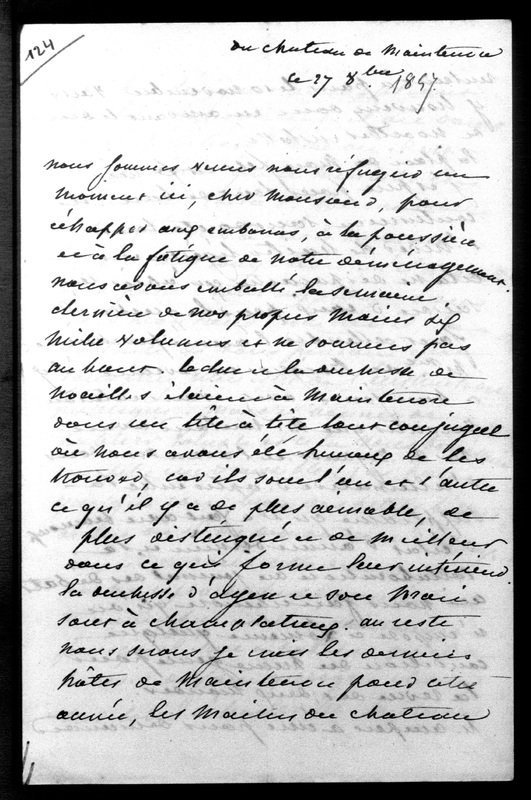 124
du chateau de Maintenon
ce 27 8bre 1857.
nous sommes venus nous réfugier un
moment ici, cher Monsieur, pour
échapper aux embarras, à la poussière
et à la fatigue de notre déménagement.
nous avons emballé la semaine
dernière de nos propres mains six
mille volumes et ne sommes pas
au bout. le duc et la duchesse de
Noailles étaient à Maintenon
dans un tête à tête tout conjugal
où nous avons été heureux de les
trouver, car ils sont l'un et l'autre
ce qu'il y a de plus aimable, de
plus distingué et de meilleur
dans ce qui forme leur intérieur.
la duchesse d'ayen et son mari
sont à champlatreux. au reste
nous serons je crois les derniers
hôtes de Maintenon pour cette
année, les Maitres du chateau